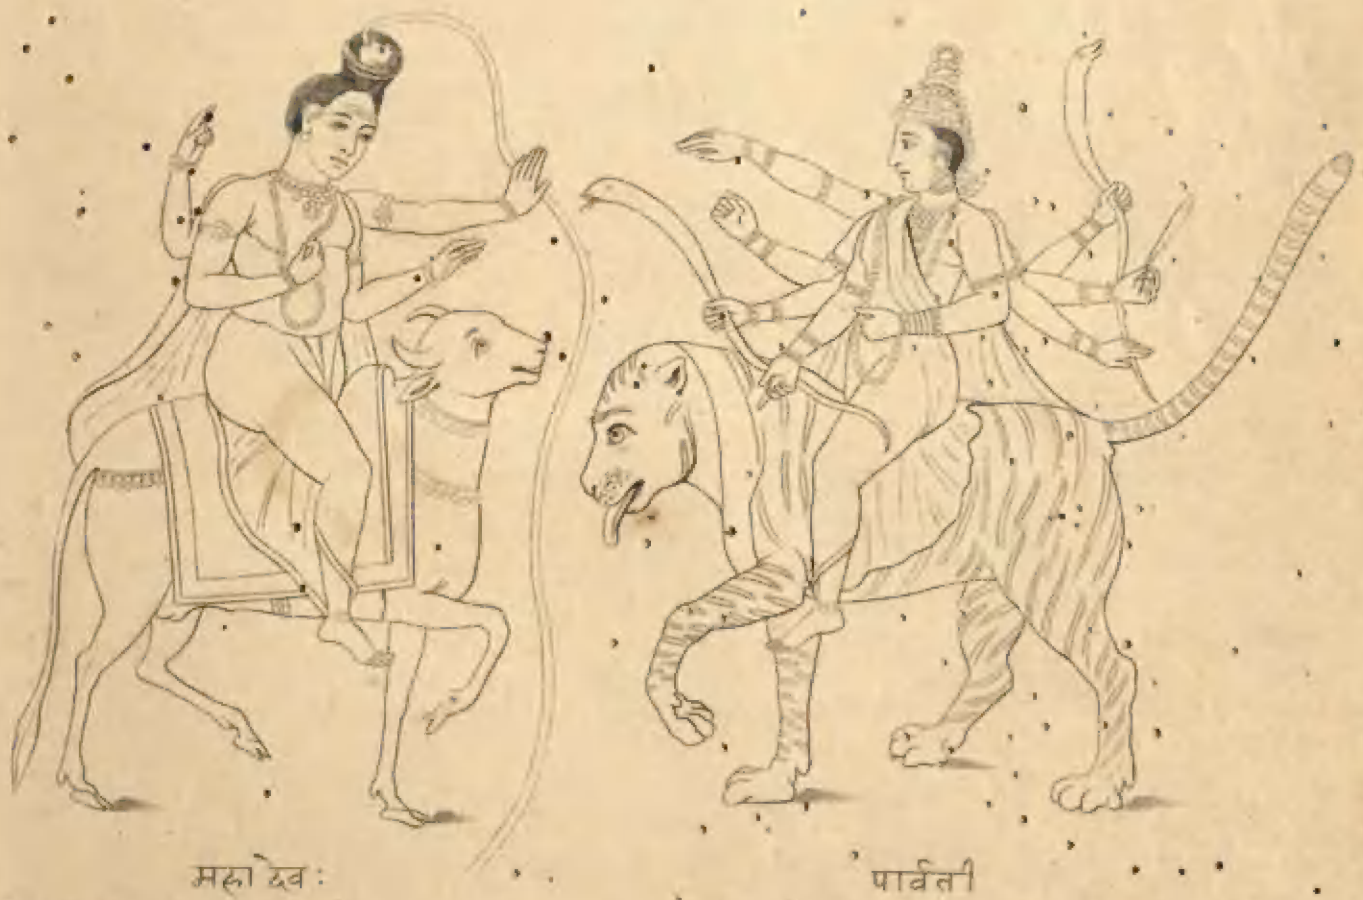 महादेवः
पार्वती